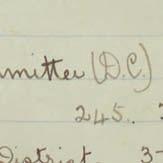 mmittee (D.C.)
245.
District 3-